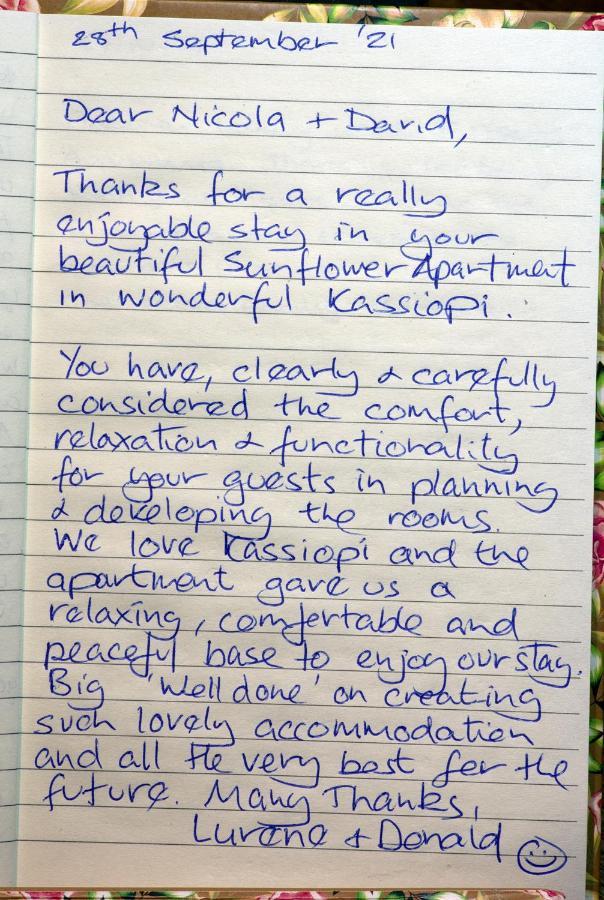 28th September '21
Dear Nicola + David,
Thanks for a really
enjoyable stay in your
beautiful Sunflower Apartment
in wonderful Kassiopi.
You have, clearly & carefully
considered the comfort,
relaxation & functionality
for your guests in planning
& developing the rooms.
We love Kassiopi and the
apartment gave us a
relaxing, comfertable and
peaceful base to enjoy our stay.
Big 'Well done' on creating
such lovely accommodation
and all the very best for the
future. Many Thanks,
Lurene + Donald